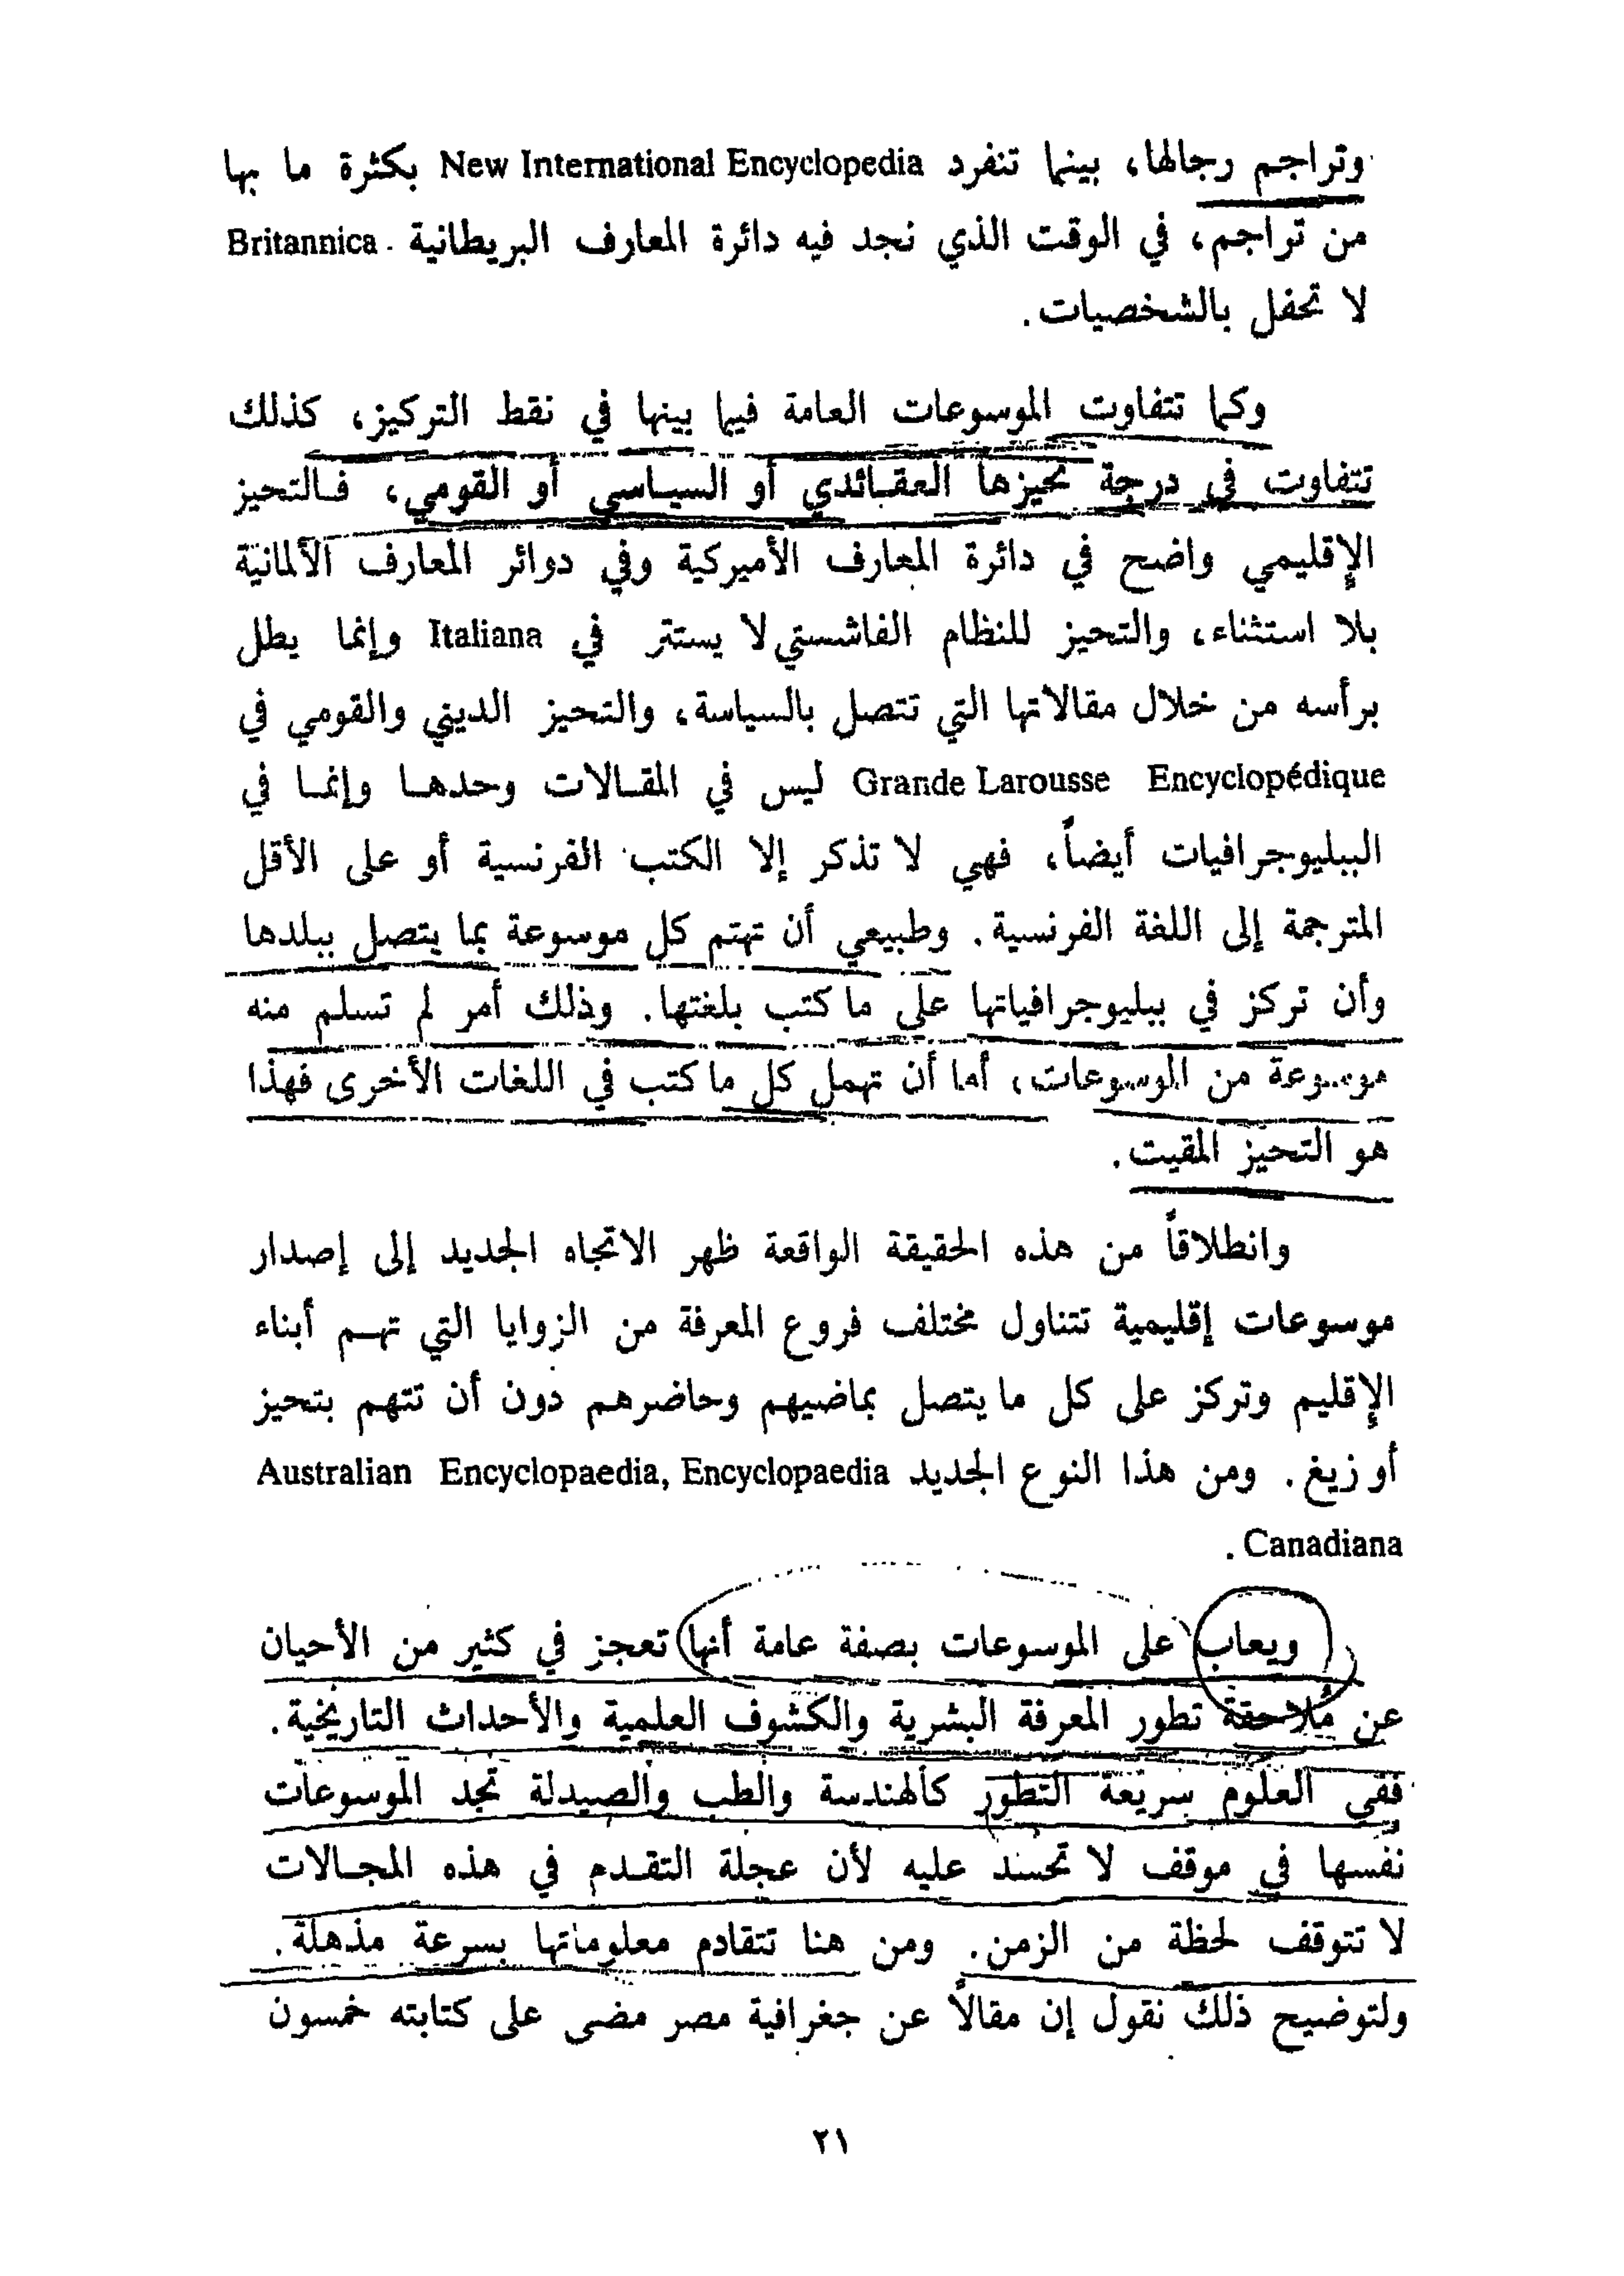 وتراجم رجالها، بينما تنفرد New International Encyclopedia بكثرة ما بها
من تراجم، في الوقت الذي نجد فيه دائرة المعارف البريطانية Britannica
لا تحفل بالشخصيات.
وكما تتفاوت الموسوعات العامة فيما بينها في نقط التركيز، كذلك
تتفاوت في درجة تحيزها العقائدي أو السياسي أو القومي، فالتحيز
الإقليمي واضح في دائرة المعارف الأميركية وفي دوائر المعارف الألمانية
بلا استثناء، والتحيز للنظام الفاشستي لا يستتر في Italiana وإنما يطل
برأسه من خلال مقالاتها التي تتصل بالسياسة، والتحيز الديني والقومي في
Grande Larousse Encyclopédique ليس في المقالات وحدها وإنما في
الببليوجرافيات أيضاً، فهي لا تذكر إلا الكتب الفرنسية أو على الأقل
المترجمة إلى اللغة الفرنسية. وطبيعي أن تهتم كل موسوعة بما يتصل ببلدها
وأن تركز في ببليوجرافياتها على ما كتب بلغتها. وذلك أمر لم تسلم منه
موسوعة من الموسوعات، أما أن تهمل كل ما كتب في اللغات الأخرى فهذا
هو التحيز المقيت.
وانطلاقاً من هذه الحقيقة الواقعة ظهر الاتجاه الجديد إلى إصدار
موسوعات إقليمية تتناول مختلف فروع المعرفة من الزوايا التي تهم أبناء
الإقليم وتركز على كل ما يتصل بماضيهم وحاضرهم دون أن تتهم بتحيز
أو زيغ. ومن هذا النوع الجديد Australian Encyclopaedia, Encyclopaedia
Canadiana.
ويعاب على الموسوعات بصفة عامة أنها تعجز في كثير من الأحيان
عن مُلاحقة تطور المعرفة البشرية والكشوف العلمية والأحداث التاريخية.
ففي العلوم سريعة التطور كالهندسة والطب والصيدلة تجد الموسوعات
نفسها في موقف لا تحسد عليه لأن عجلة التقدم في هذه المجالات
لا تتوقف لحظة من الزمن. ومن هنا تتقادم معلوماتها بسرعة مذهلة.
ولتوضيح ذلك نقول إن مقالاً عن جغرافية مصر مضى على كتابته خمسون
٢١